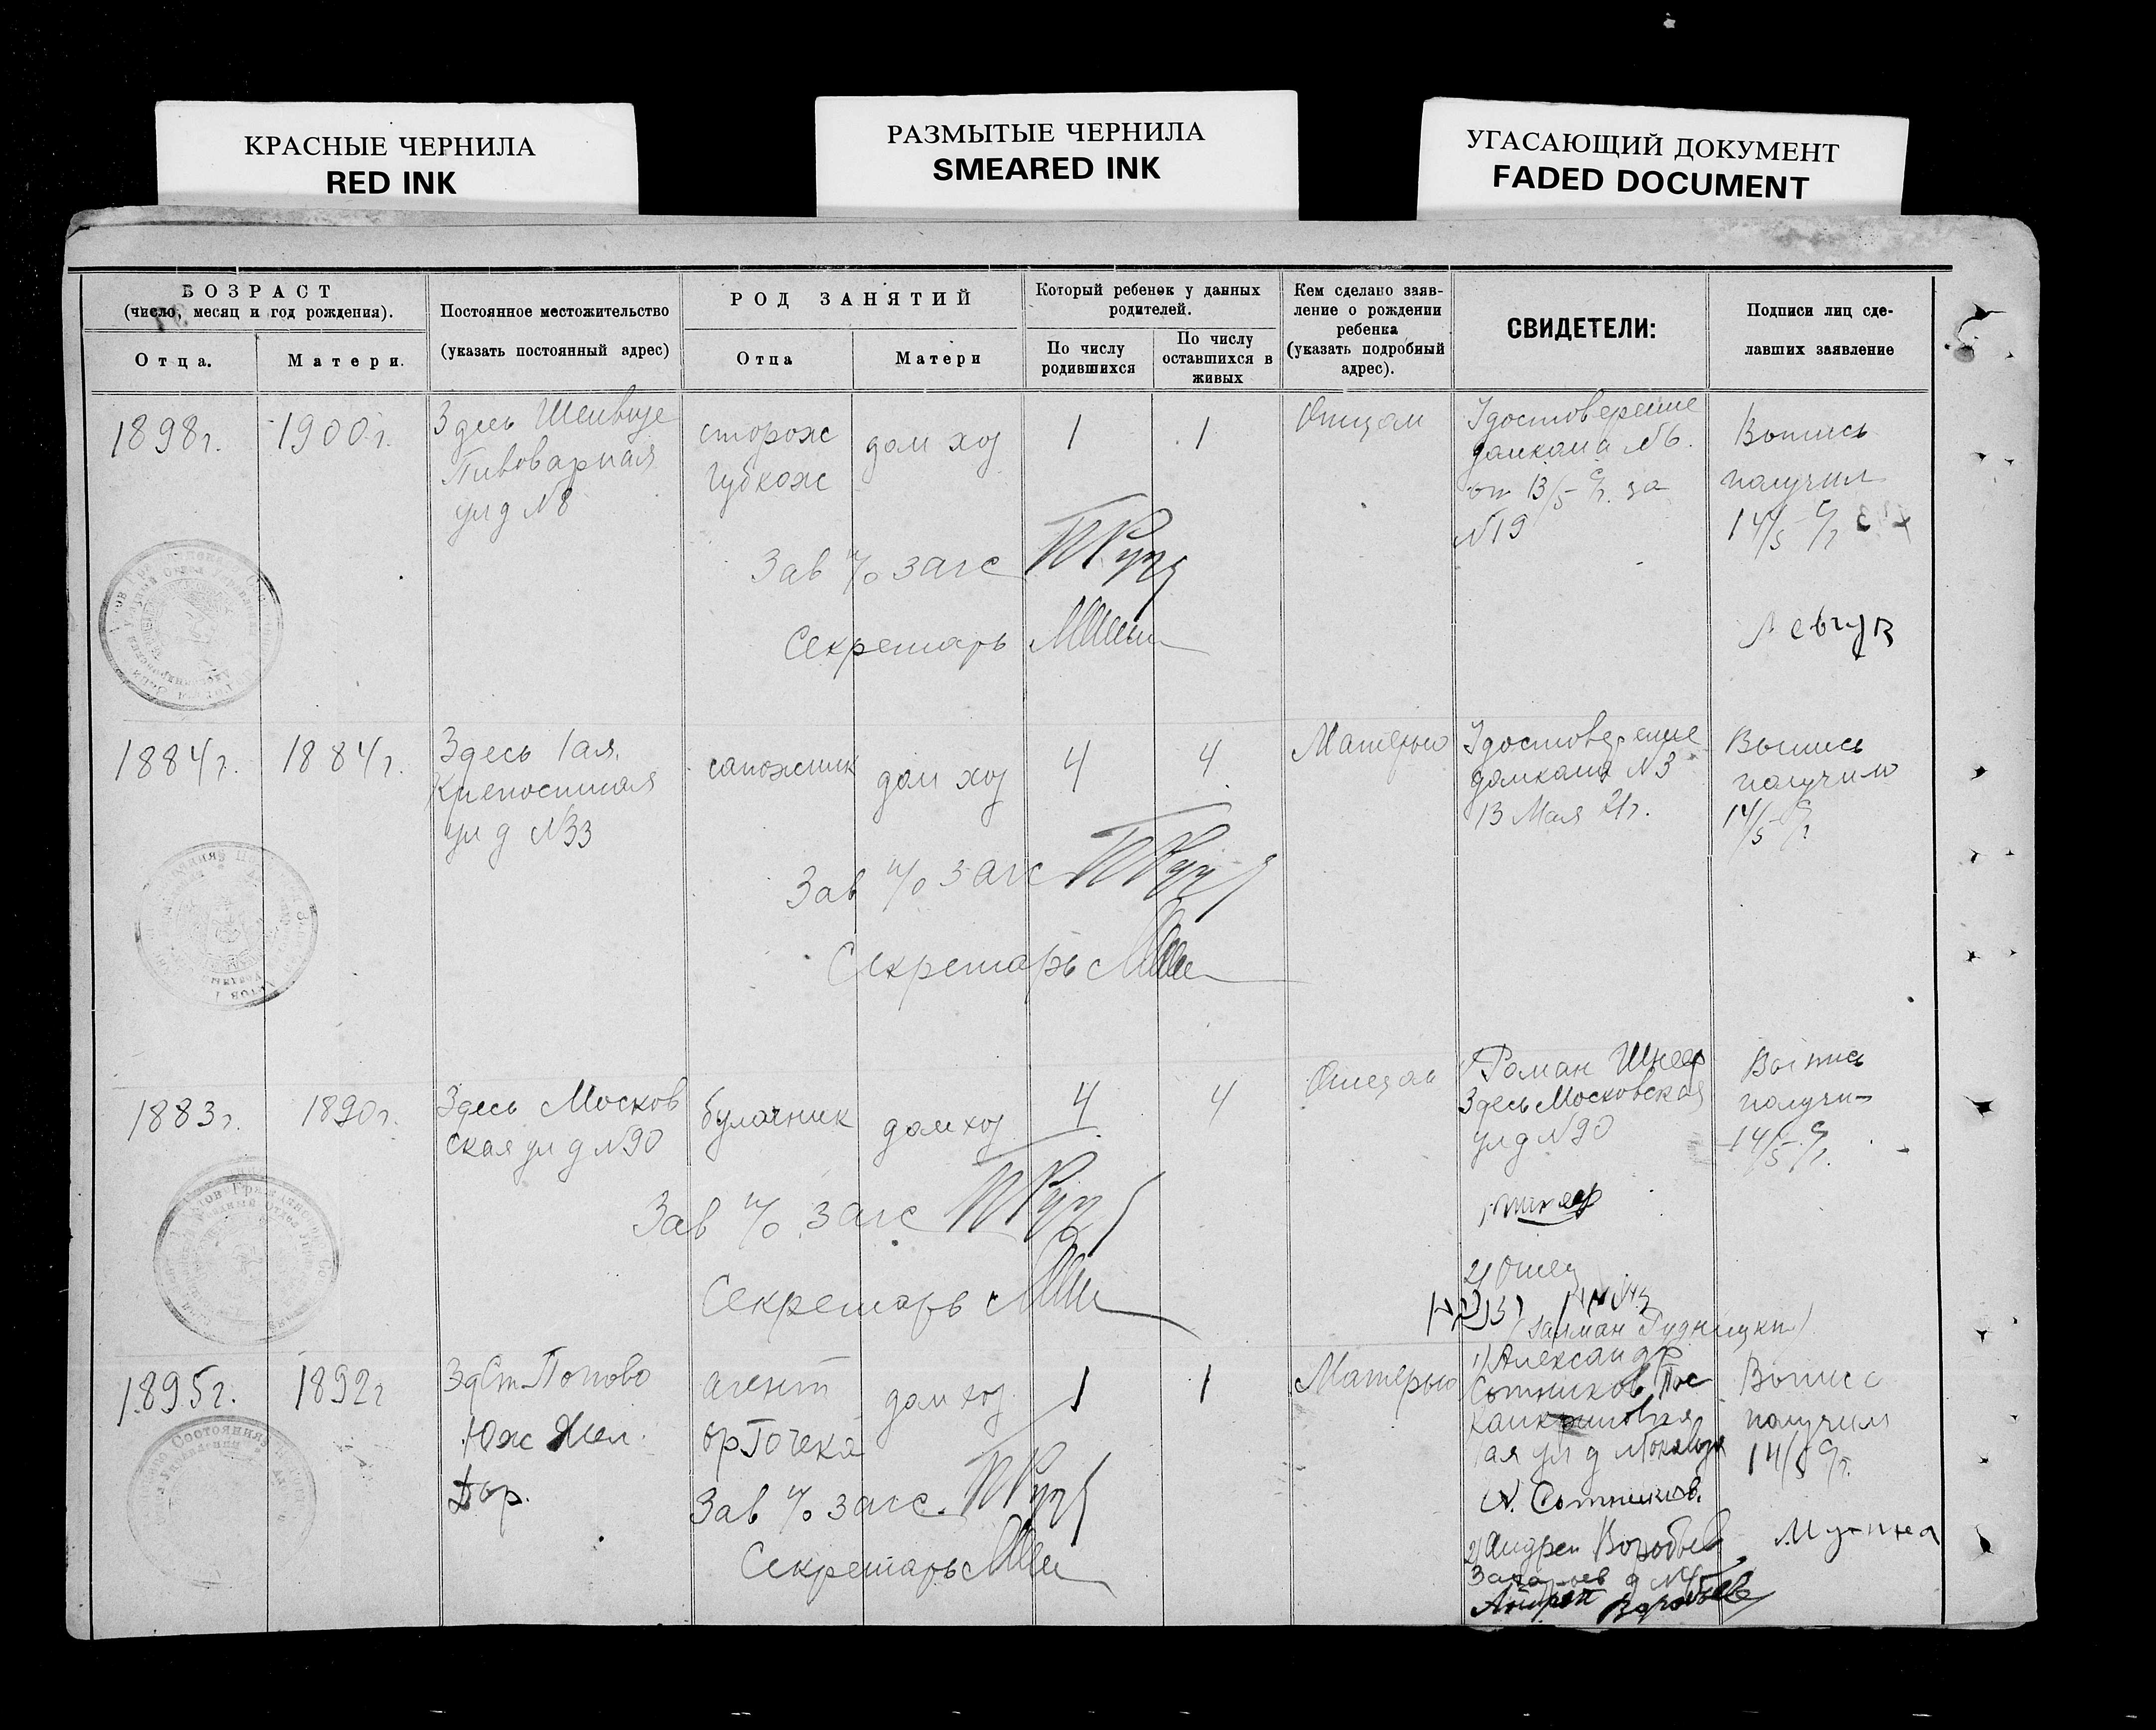 КРАСНЫЕ ЧЕРНИЛА
RED INK
РАЗМЫТЫЕ ЧЕРНИЛА
SMEARED INK
УГАСАЮЩИЙ ДОКУМЕНТ
FADED DOCUMENT
ВОЗРАСТ
(число, месяц и год рождения).
Отца.
Матери.
Постоянное местожительство
(указать постоянный адрес)
РОД ЗАНЯТИЙ
Отца
Матери
Который ребенок у данных
родителей.
По числу
родившихся
По числу
оставшихся в
живых
Кем сделано заяв-
ление о рождении
ребенка
(указать подробный
адрес).
СВИДЕТЕЛИ:
Подписи лиц сде-
лавших заявление
1898г.
1900г.
Здесь
Пивоварная
ул д №8
сторож
Губкож
дом хоз
1
1
Отцом
Удостоверение
домкома №6.
от 13/5 с/г. за
№19
Вопись
получил
14/5 с/г
Зав п/о загс
Секретарь
1884г.
1884г.
Здесь 1ая
Крепостная
ул д №33
сапожник
дом хоз
4
4
Матерью
Удостоверение
домкома №3
13 Мая 21г.
Вопись
получила
14/5 с/г
Зав п/о загс
Секретарь
1883г.
1890г.
Здесь Москов
ская ул д №90
булочник
дом хоз
4
4
Отцом
1) Роман Шкляр
Здесь Московская
ул д №90
2) Отец
(Залман Рудницкий)
Вопись
получи-
14/5 с/г.
Зав п/о загс
Секретарь
1895г.
1892г
Ст Попово
Юж Жел.
Дор.
агент
орТОчека
дом хоз
1
1
Матерью
1) Александр
Сотников Пос
1ая ул д
А. Сотников.
2) Андрей Воробьев
Андрей Воробьев
Вопись
получила
14/5 с/г.
Зав п/о загс.
Секретарь